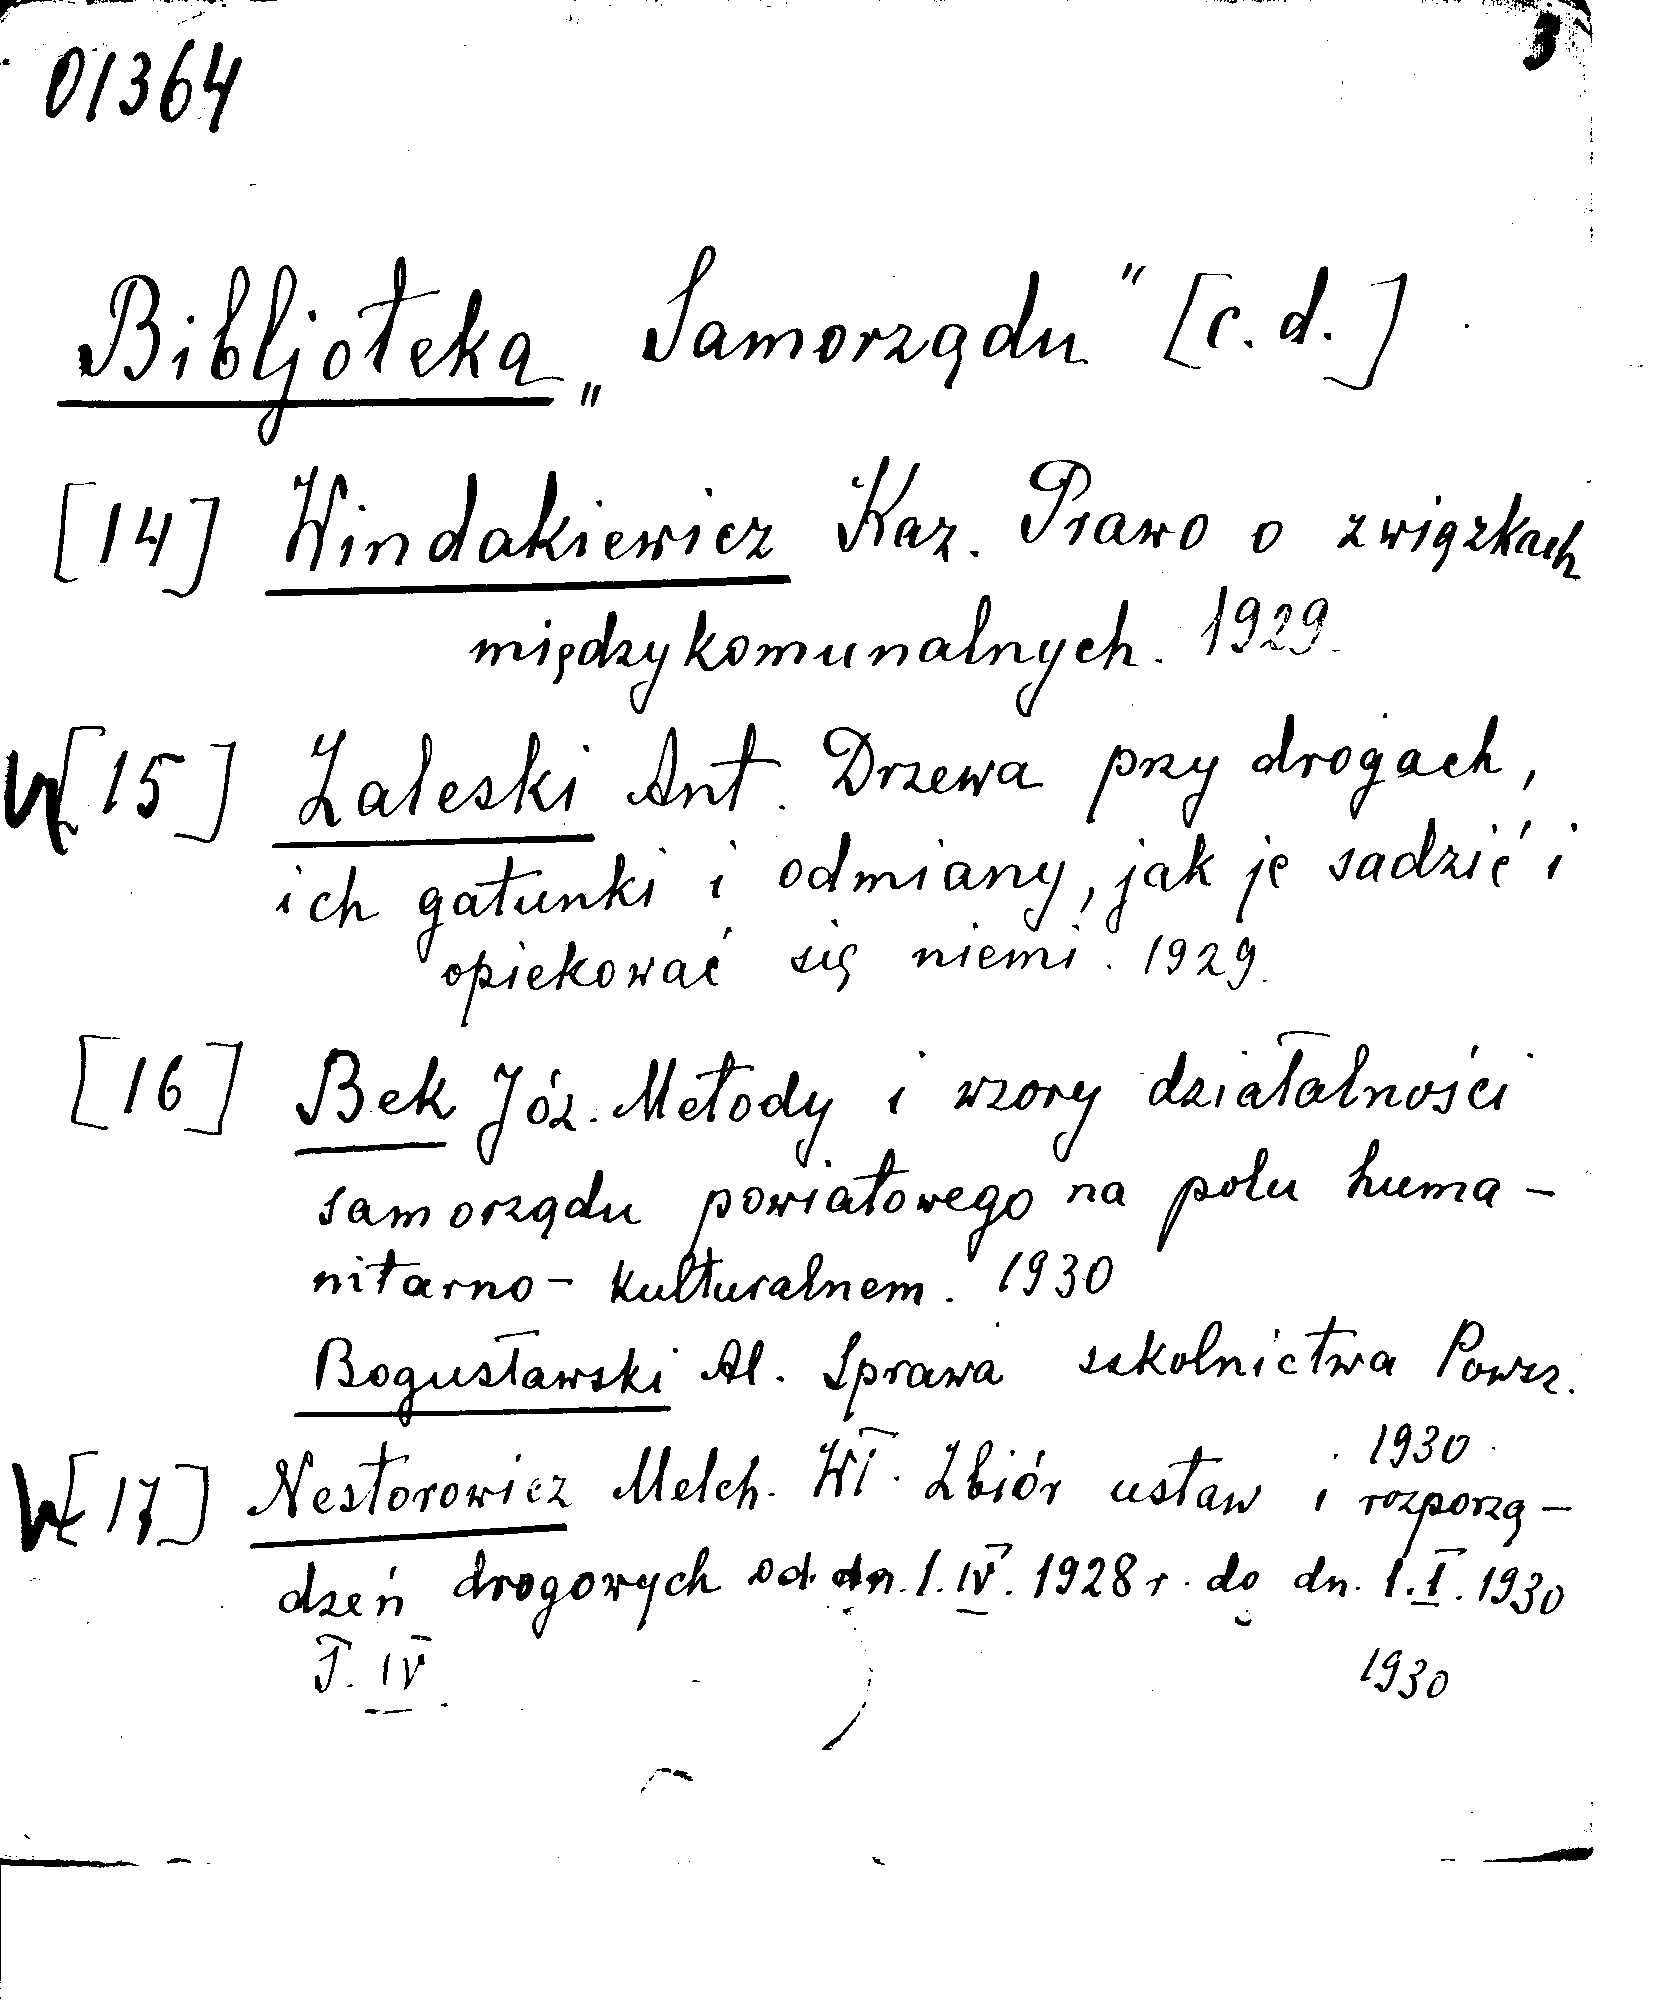 01364
3
Bibljoteka „Samorządu" [c. d.]
[14] Windakiewicz Kaz. Prawo o związkach
międzykomunalnych. 1929.
[15] Zaleski Ant. Drzewa przy drogach,
ich gatunki i odmiany, jak je sadzić i
opiekować się niemi. 1929.
[16] Bek Józ. Metody i wzory działalności
samorządu powiatowego na polu huma-
nitarno-kulturalnem. 1930
Bogusławski Al. Sprawa szkolnictwa Powsz.
1930
[17] Nestorowicz Melch. Wł. Zbiór ustaw i rozporzą-
dzeń drogowych od dn. 1.IV.1928 r. do dn. 1.I.1930
T. IV. 1930